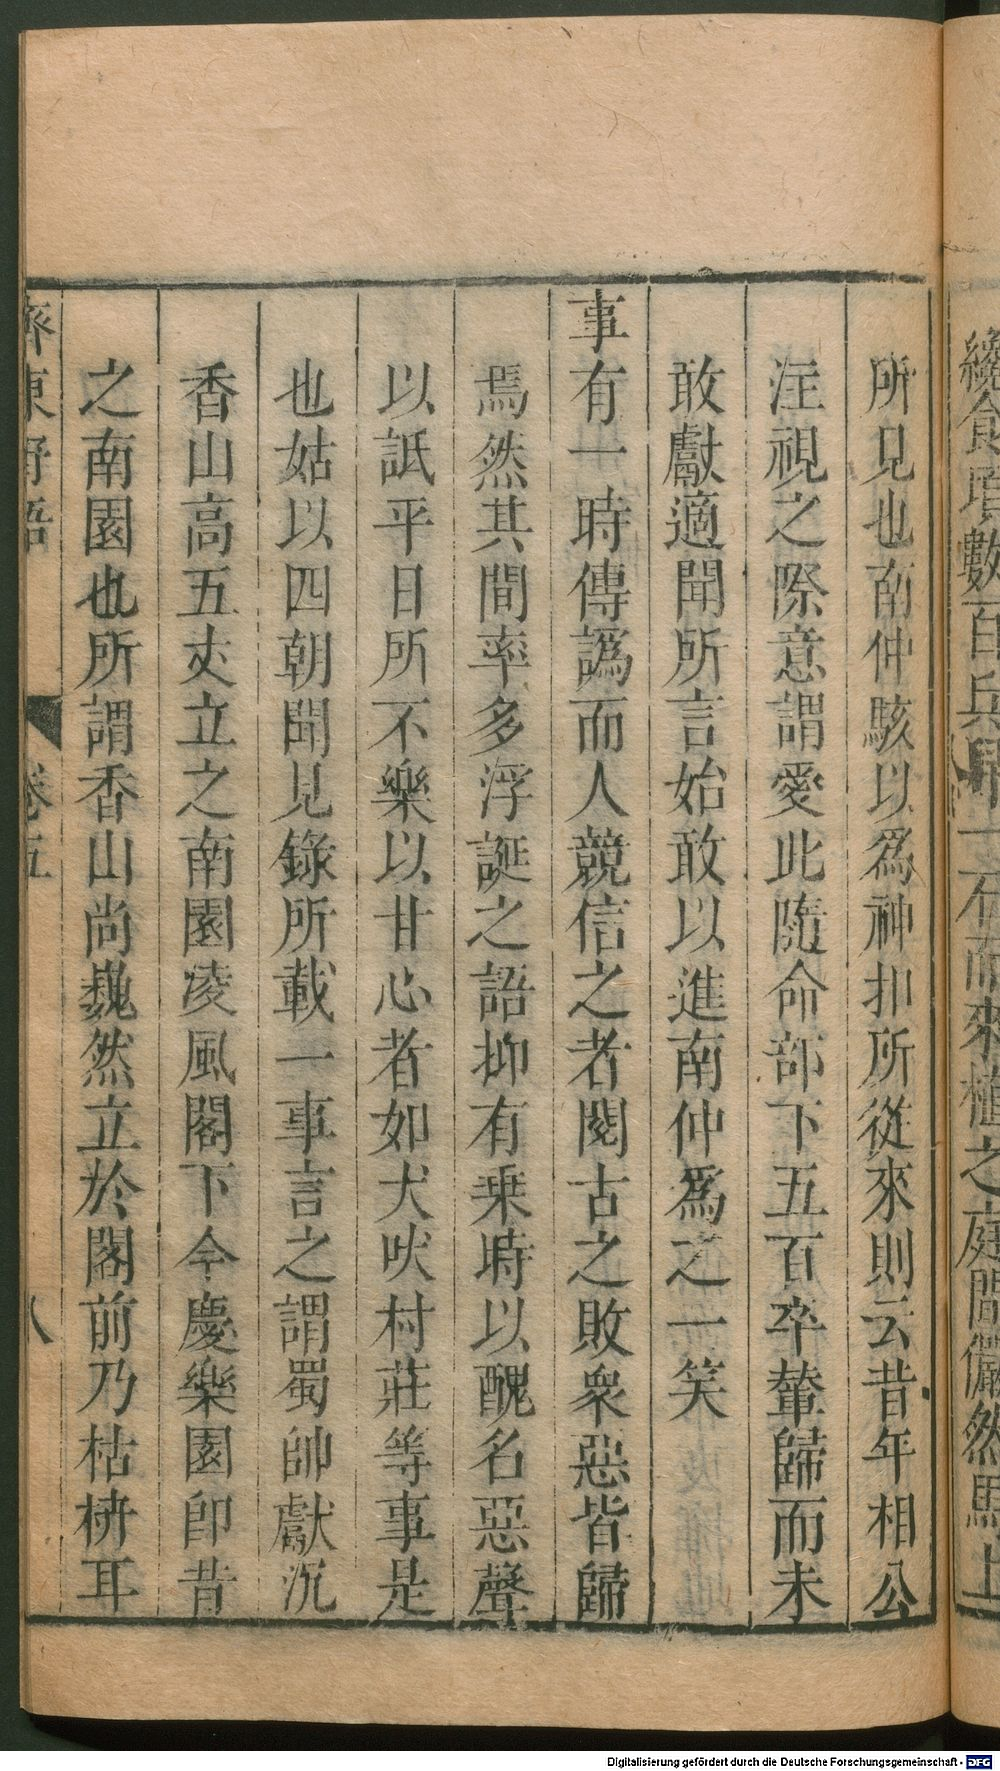 纔食頃數百兵舁一石而來植之庭間儼然馬上
所見也南仲駭以爲神扣所從來則云昔年相公
注視之際意謂愛此隨命部下五百卒輦歸而未
敢獻適聞所言始敢以進南仲爲之一笑
事有一時傳譌而人競信之者閱古之敗衆惡皆歸
焉然其間率多浮誕之語抑有乗時以醜名惡聲
以詆平日所不樂以甘心者如犬吠村莊等事是
也姑以四朝聞見錄所載一事言之謂蜀帥獻沉
香山高五丈立之南園凌風閣下今慶樂園卽昔
之南園也所謂香山尚巍然立於閣前乃枯枿耳
齊東野語 卷五 八
Digitalisierung gefördert durch die Deutsche Forschungsgemeinschaft - DFG